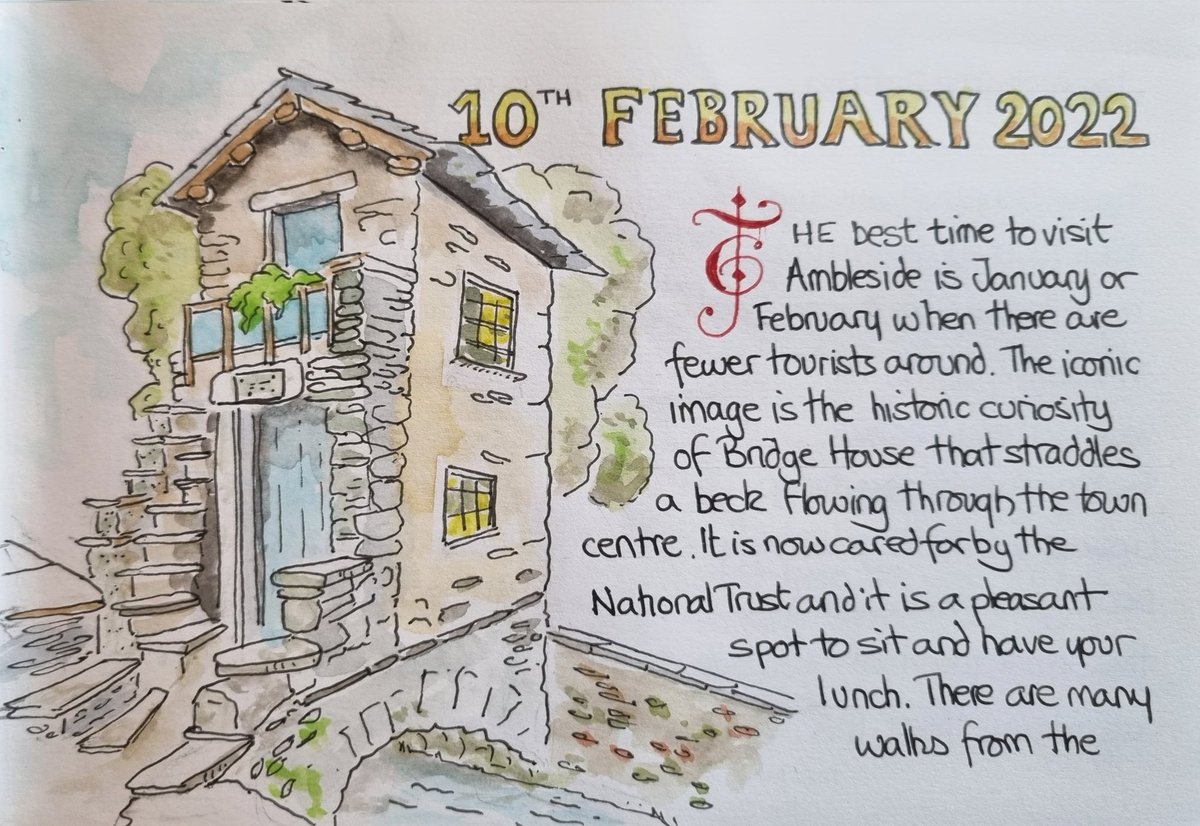 10TH FEBRUARY 2022
THE best time to visit
Ambleside is January or
February when there are
fewer tourists around. The iconic
image is the historic curiosity
of Bridge House that straddles
a beck flowing through the town
centre. It is now cared for by the
National Trust and it is a pleasant
spot to sit and have your
lunch. There are many
walks from the